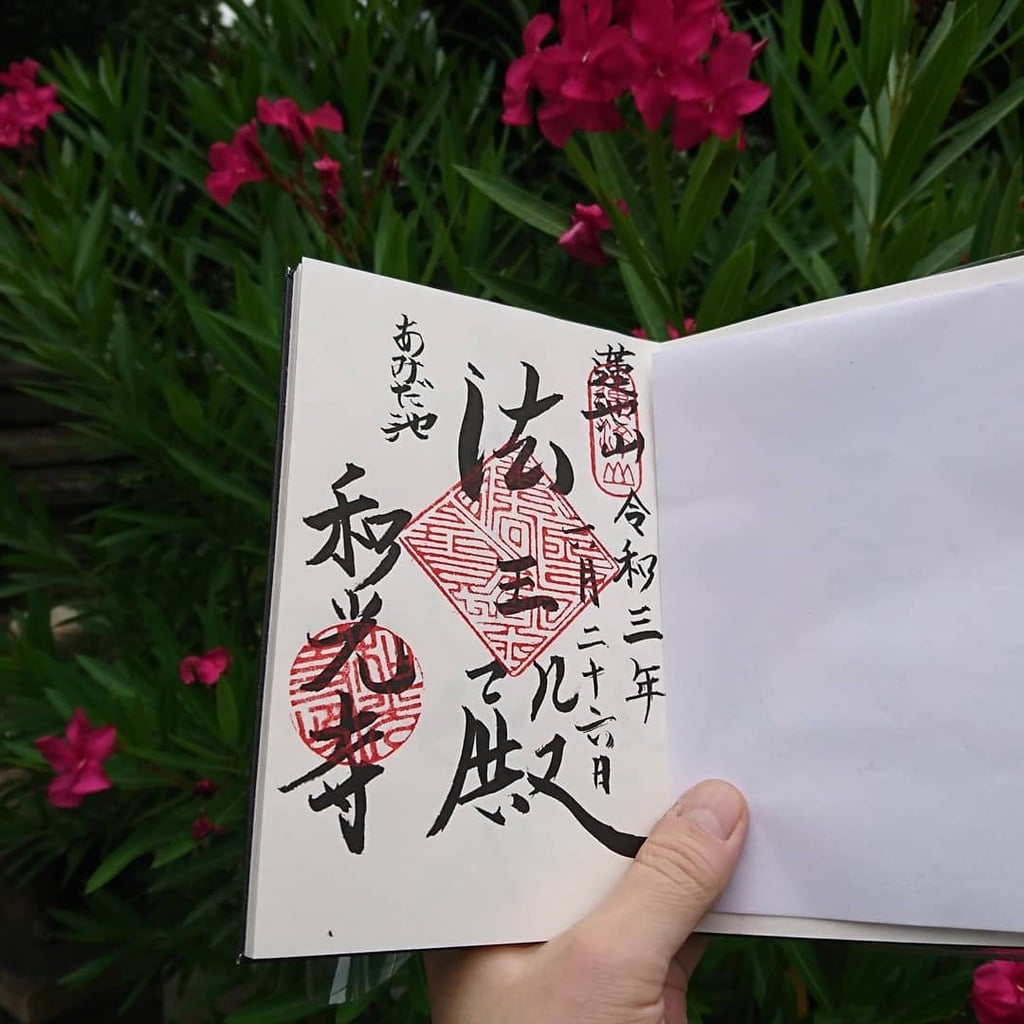 蓮池山
令和三年
月二十六日
法王殿
あみだ池
和光寺